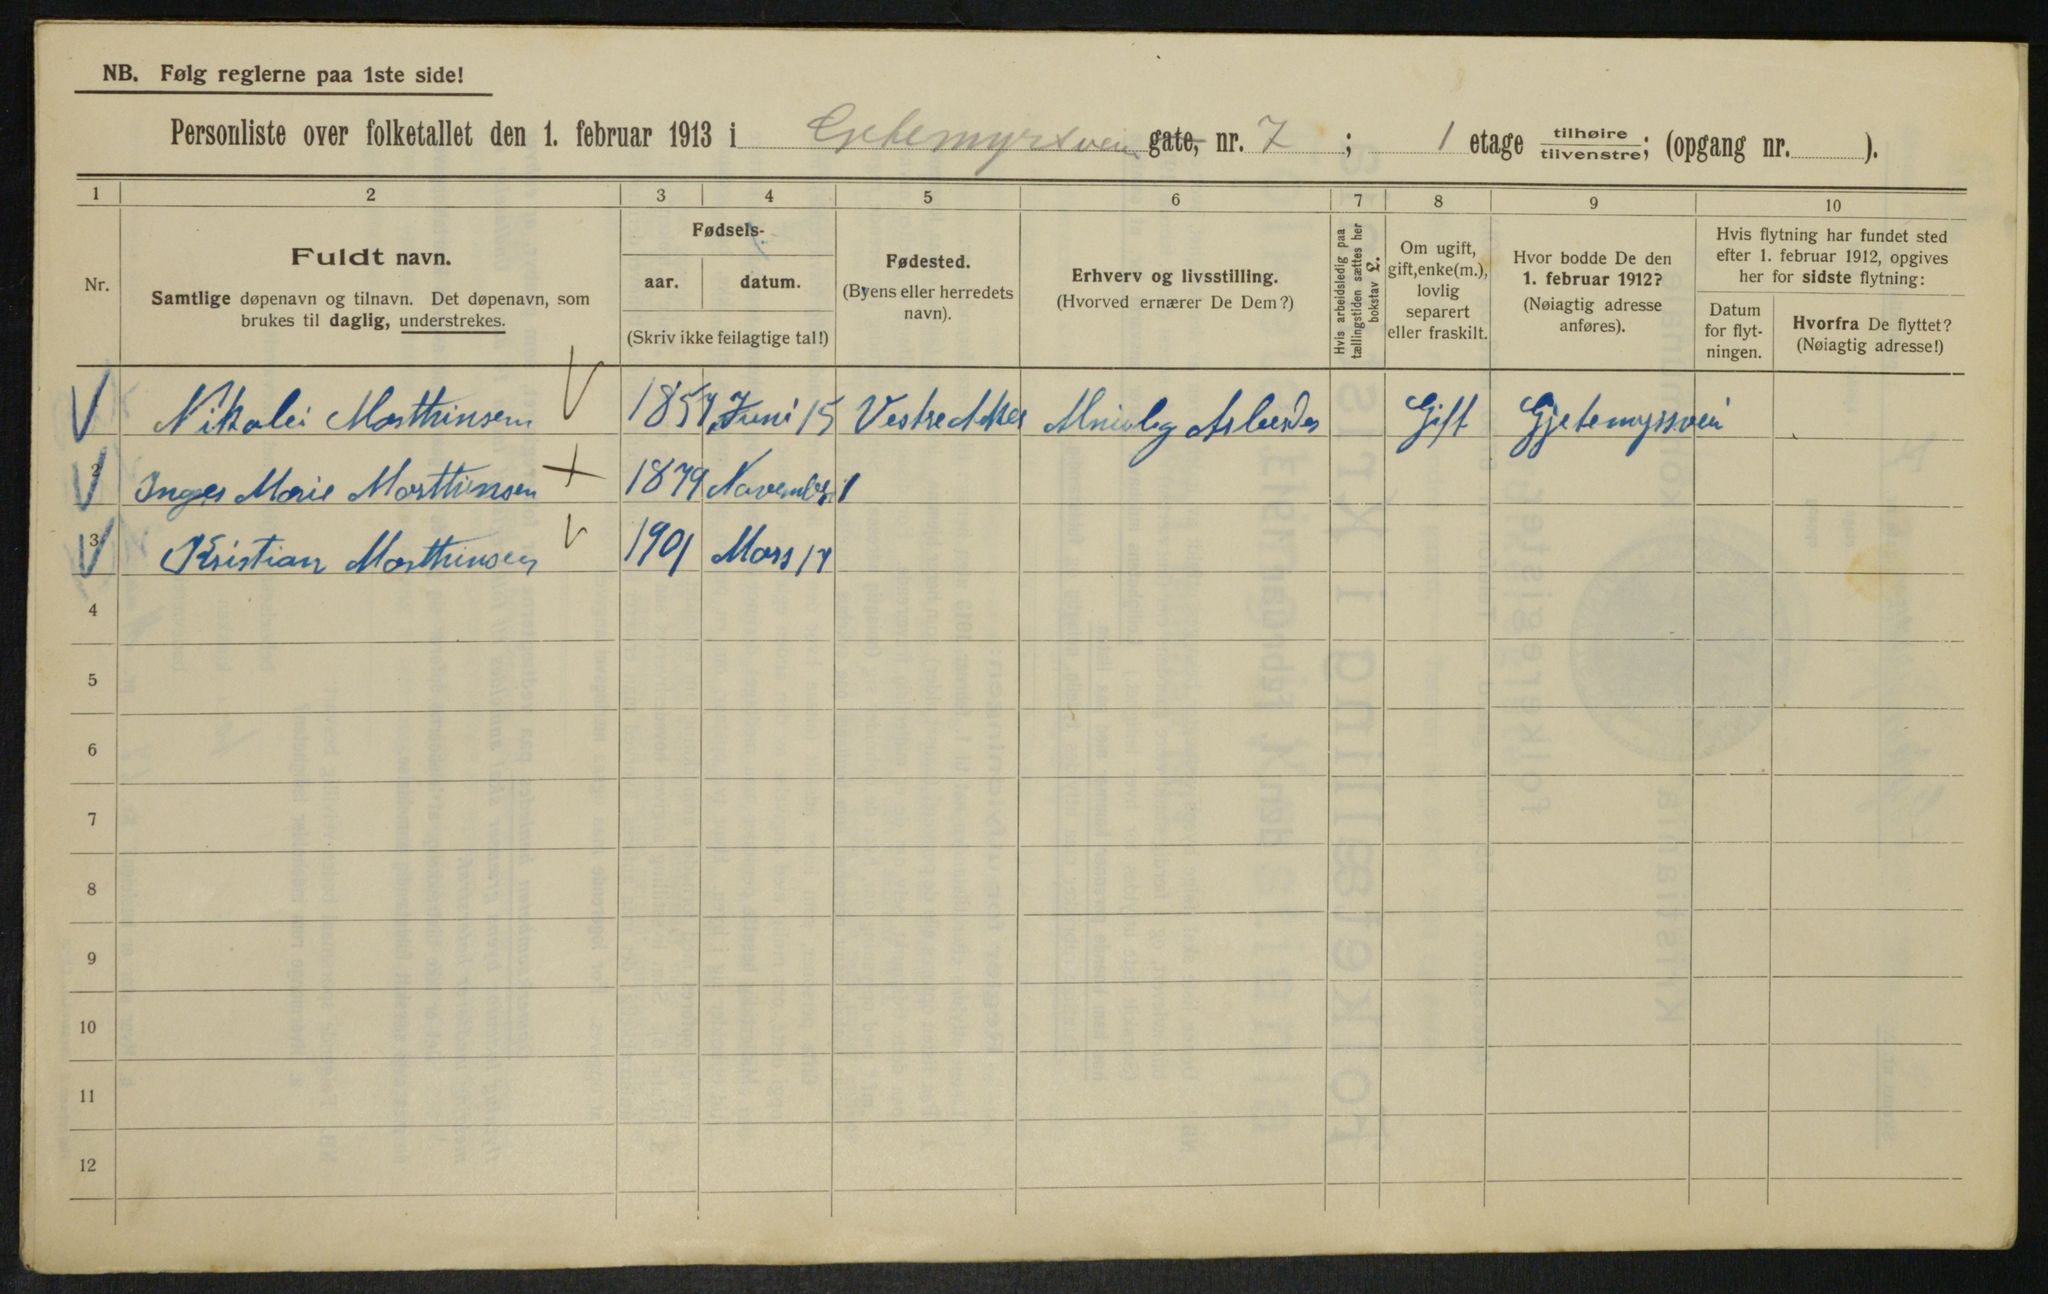 NB. Følg reglerne paa 1ste side!
Personliste over folketallet den 1. februar 1913 i Gjetemyrsvein gate, nr. 7 ; 1 etage tilhøire tilvenstre; (opgang nr. ).
1 2 3 4 5 6 7 8 9 10
Nr.
Fuldt navn.
Samtlige døpenavn og tilnavn. Det døpenavn, som
brukes til daglig, understrekes.
Fødsels-
aar. datum.
(Skriv ikke feilagtige tal!)
Fødested.
(Byens eller herredets
navn).
Erhverv og livsstilling.
(Hvorved ernærer De Dem?)
Hvis arbeidsledig paa
tællingstiden sættes her
bokstav L.
Om ugift,
gift, enke(m.),
lovlig
separert
eller fraskilt.
Hvor bodde De den
1. februar 1912?
(Nøiagtig adresse
anføres).
Hvis flytning har fundet sted
efter 1. februar 1912, opgives
her for sidste flytning:
Datum
for flyt-
ningen.
Hvorfra De flyttet?
(Nøiagtig adresse!)
V Nikolai Marthinsen V 1857 Juni 15 Vestre Aker Almindlig Arbeider Gift Gjetemyrsvei
V 2 Inger Marie Marthinsen + 1879 November 1
V 3 Kristian Marthinsen V 1901 Mars 17
4
5
6
7
8
9
10
11
12